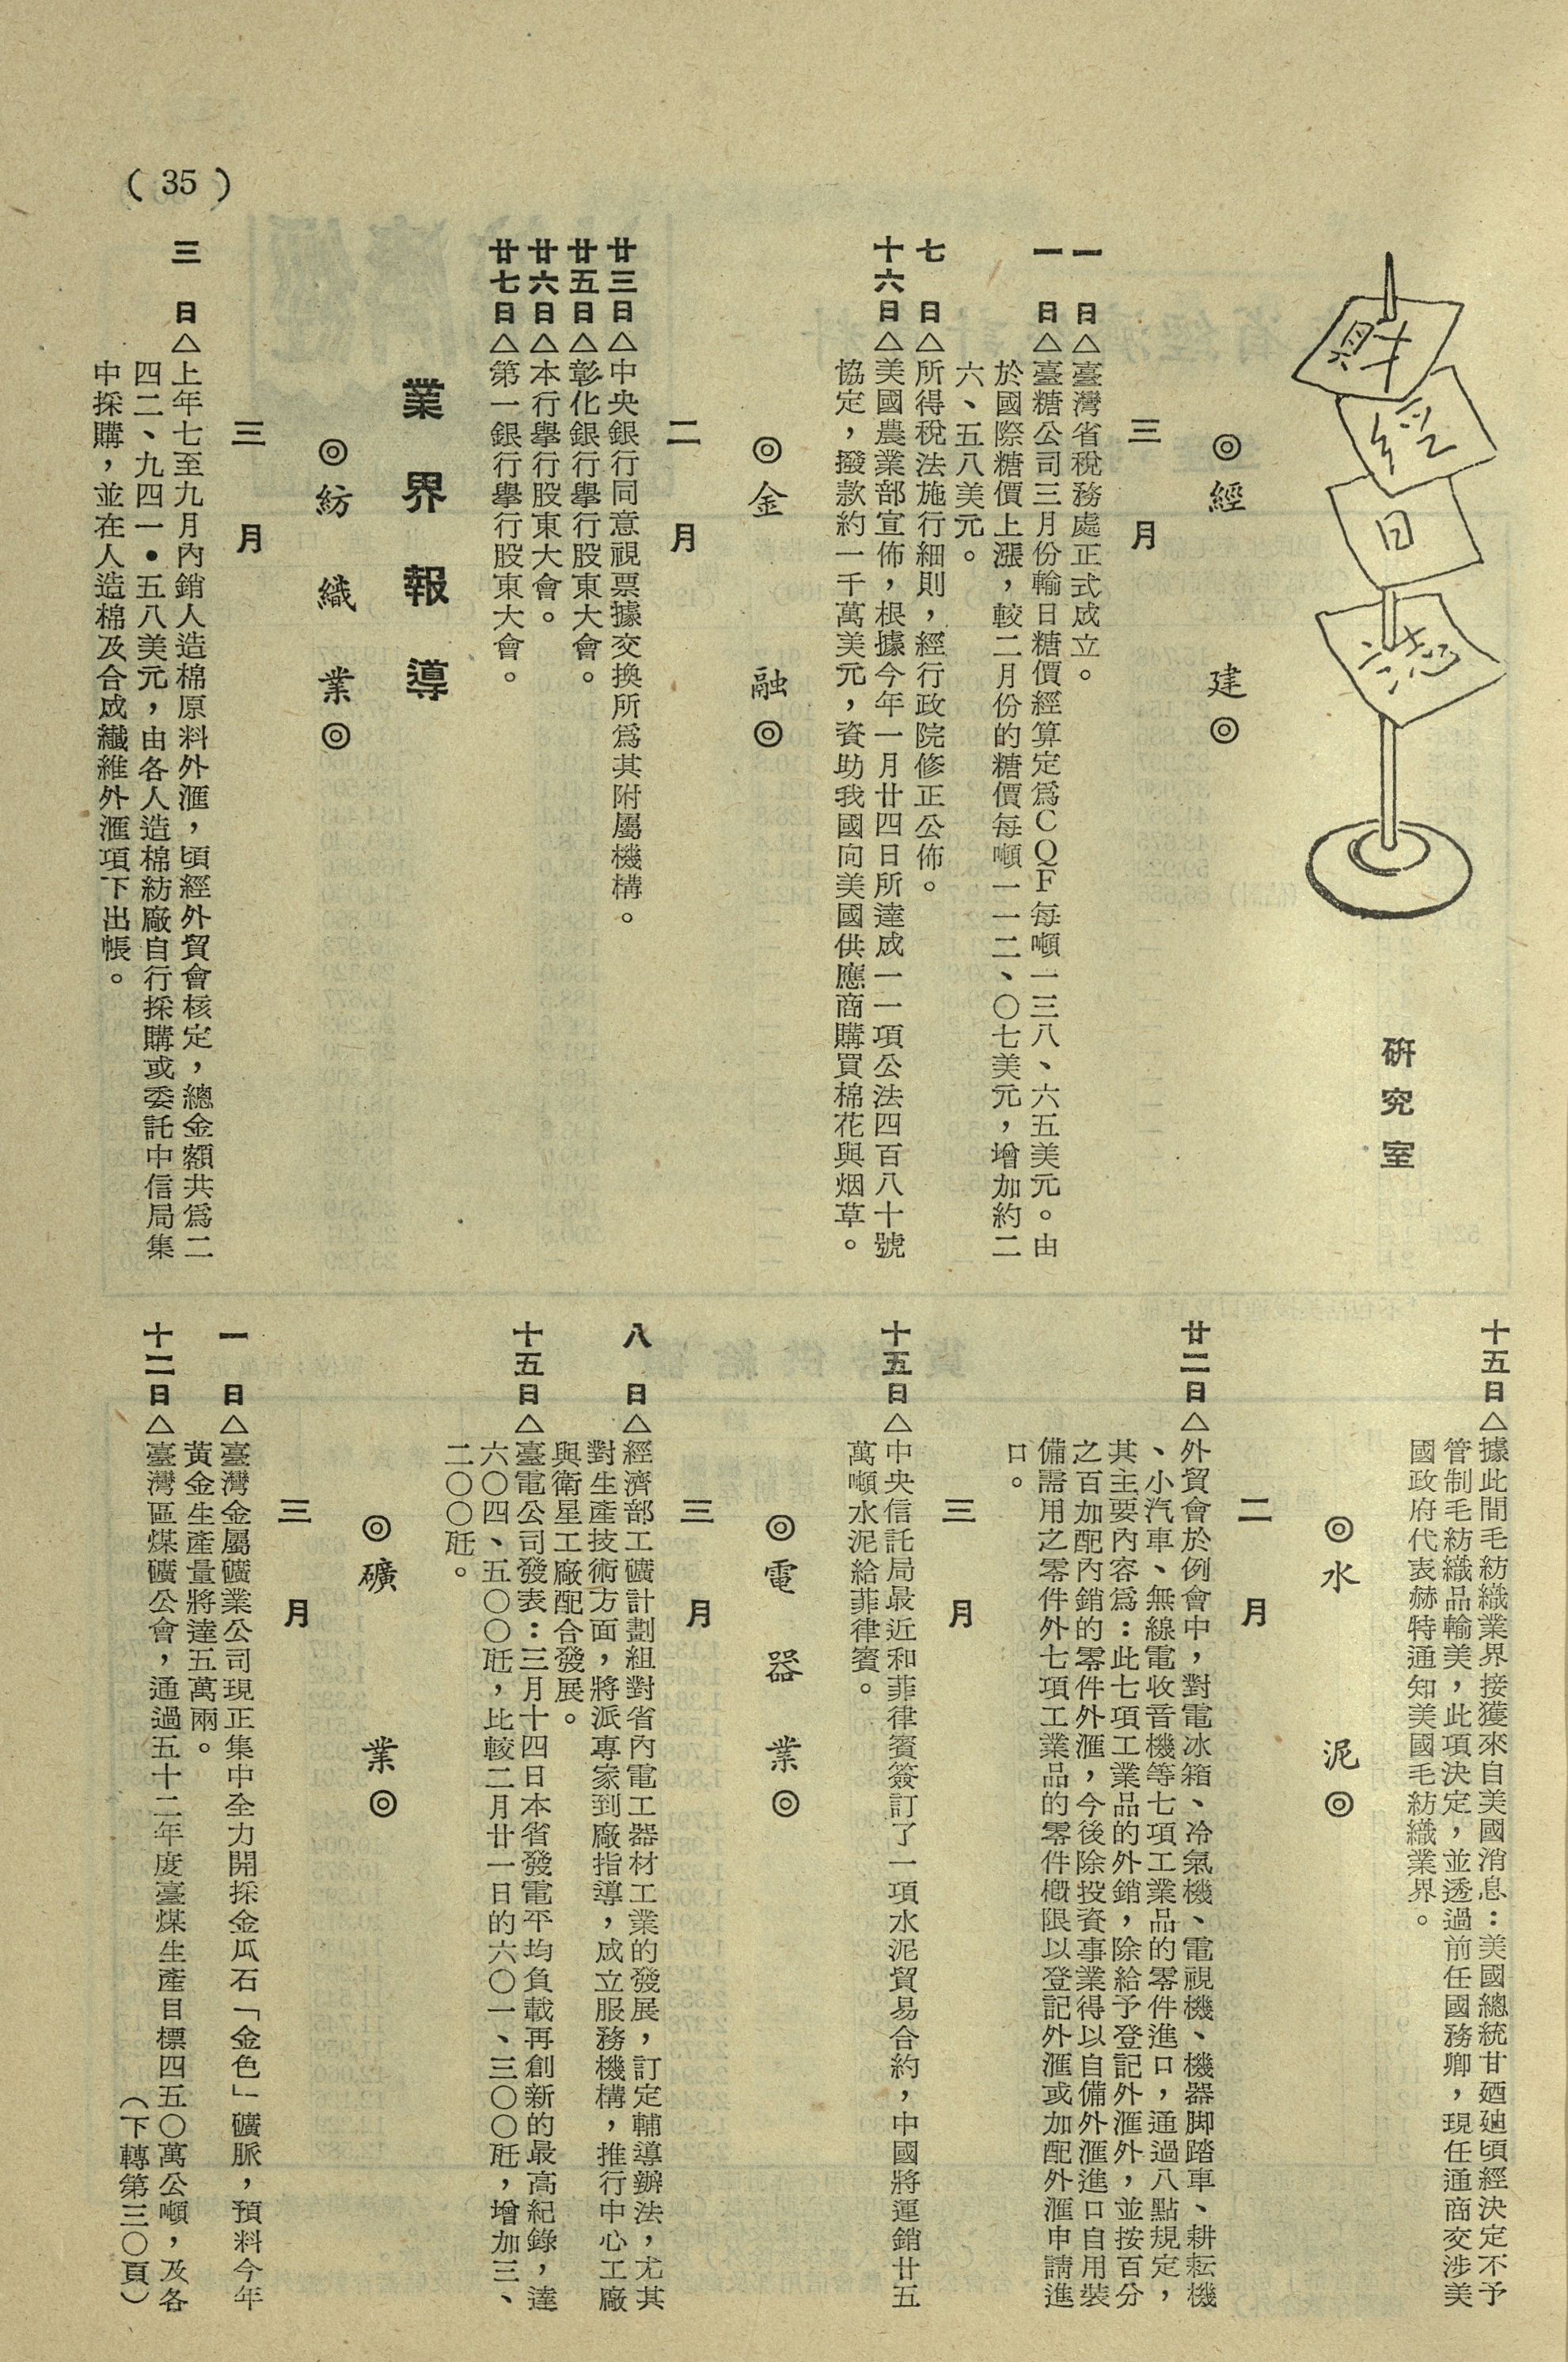 財經日誌
硏究室
◎經建◎
三月
一日△臺灣省稅務處正式成立。
一日△臺糖公司三月份輸日糖價經算定爲CQF每噸一三八、六五美元。由
於國際糖價上漲，較二月份的糖價每噸一一二、〇七美元，增加約二
六、五八美元。
七日△所得稅法施行細則，經行政院修正公佈。
十六日△美國農業部宣佈，根據今年一月廿四日所達成一一項公法四百八十號
協定，撥款約一千萬美元，資助我國向美國供應商購買棉花與烟草。
◎金融◎
二月
廿三日△中央銀行同意視票據交換所爲其附屬機構。
廿五日△彰化銀行舉行股東大會。
廿六日△本行舉行股東大會。
廿七日△第一銀行舉行股東大會。
業界報導
◎紡織業◎
三月
三日△上年七至九月內銷人造棉原料外滙，頃經外貿會核定，總金額共爲二
四二、九四一•五八美元，由各人造棉紡廠自行採購或委託中信局集
中採購，並在人造棉及合成纖維外滙項下出帳。
十五日△據此間毛紡織業界接獲來自美國消息：美國總統甘廼廸頃經決定不予
管制毛紡織品輸美，此項決定，並透過前任國務卿，現任通商交涉美
國政府代表赫特通知美國毛紡織業界。
◎水泥◎
二月
廿二日△外貿會於例會中，對電冰箱、冷氣機、電視機、機器脚踏車、耕耘機
、小汽車、無線電收音機等七項工業品的零件進口，通過八點規定，
其主要內容爲：此七項工業品的外銷，除給予登記外滙外，並按百分
之百加配內銷的零件外滙，今後除投資事業得以自備外滙進口自用裝
備需用之零件外七項工業品的零件槪限以登記外滙或加配外滙申請進
口。
三月
十五日△中央信託局最近和菲律賓簽訂了一項水泥貿易合約，中國將運銷廿五
萬噸水泥給菲律賓。
◎電器業◎
三月
八日△經濟部工礦計劃組對省內電工器材工業的發展，訂定輔導辦法，尤其
對生產技術方面，將派專家到廠指導，成立服務機構，推行中心工廠
與衛星工廠配合發展。
十五日△臺電公司發表：三月十四日本省發電平均負載再創新的最高紀錄，達
六〇四、五〇〇瓩，比較二月廿一日的六〇一、三〇〇瓩，增加三、
二〇〇瓩。
◎礦業◎
三月
一日△臺灣金屬礦業公司現正集中全力開採金瓜石「金色」礦脈，預料今年
黃金生產量將達五萬兩。
十二日△臺灣區煤礦公會，通過五十二年度臺煤生產目標四五〇萬公噸，及各
（下轉第三〇頁）
（35）